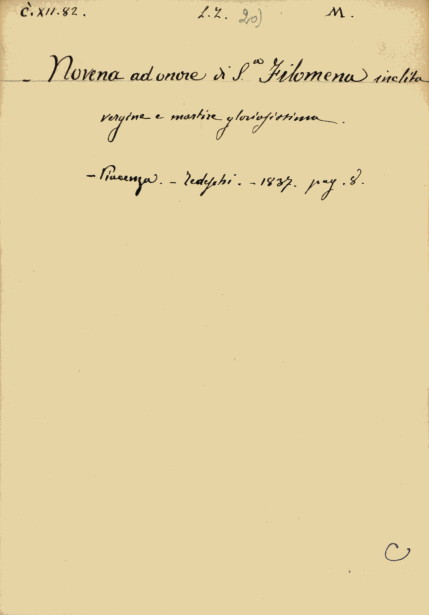 Č.XII.82. L.L. 20) M.
- Novena ad onore di S.a Filomena inclita
vergine e martire gloriosissima.
- Piacenza. - Tedeschi. - 1837. pag. 8.
C